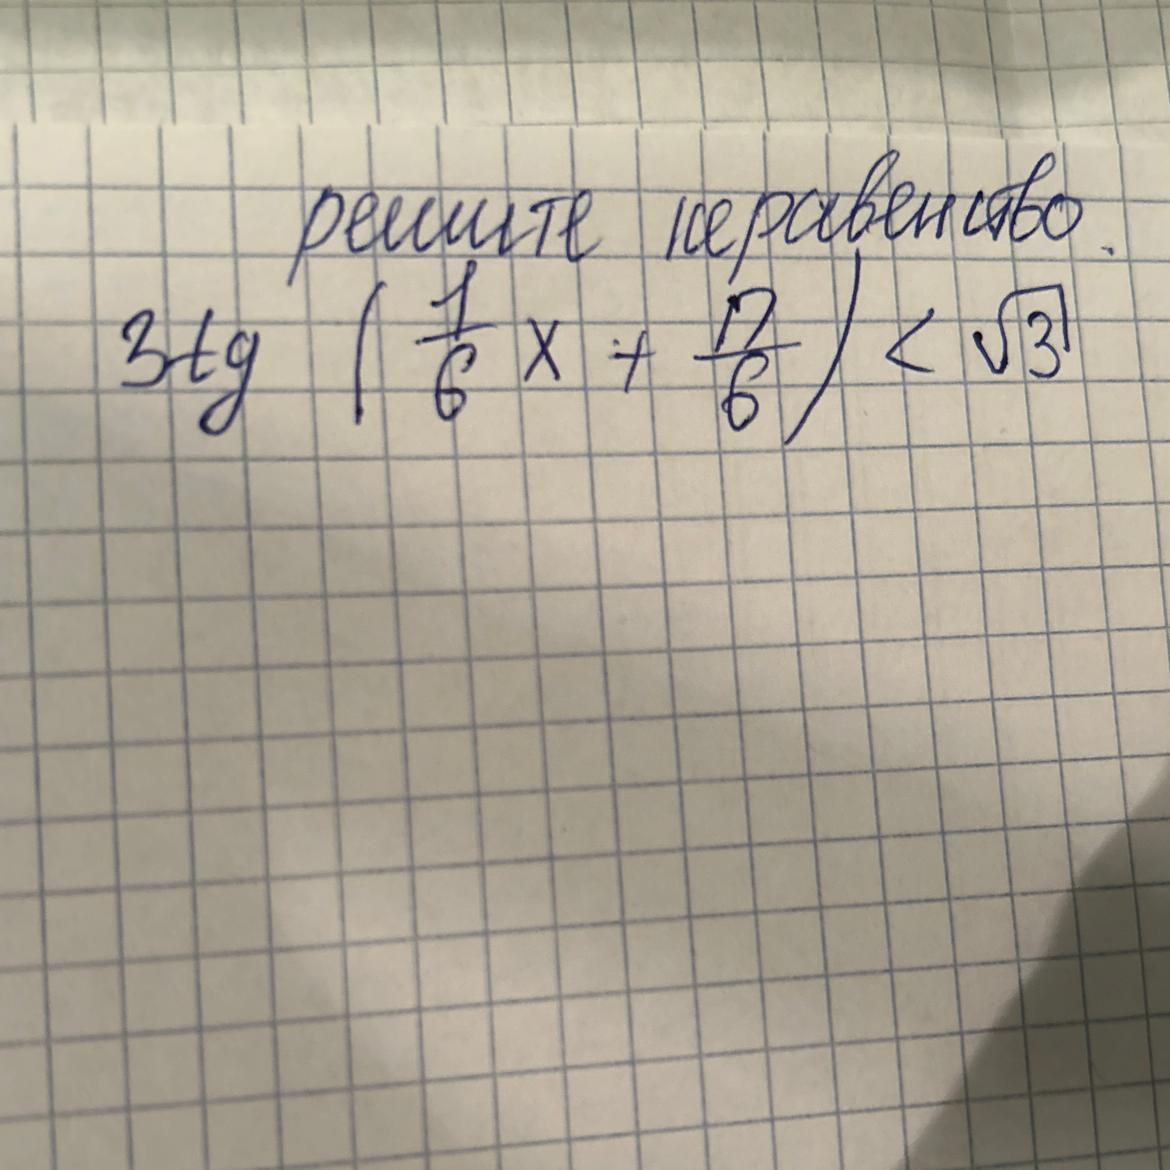 решите неравенство.
3tg (1/6 x + π/6) < √3